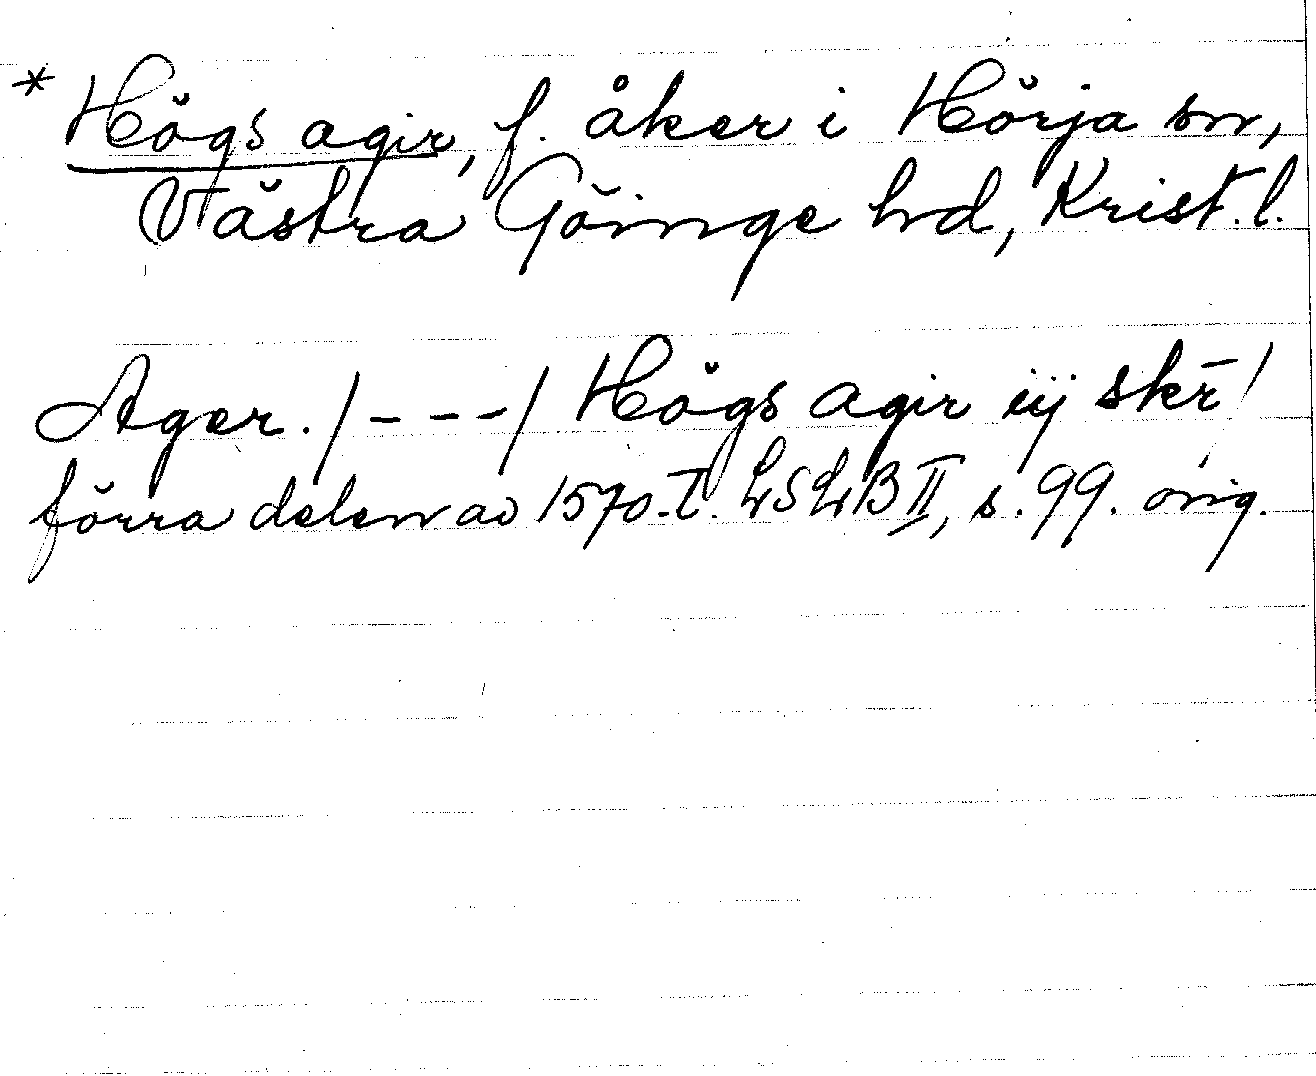 * Högs agir, f. åker i Hörja sn,
Västra Göinge hd, Krist. l.
Ager. /---/ Högs agir iij skr̄ /
förra delen av 1570-t. LSLB II, s. 99. orig.